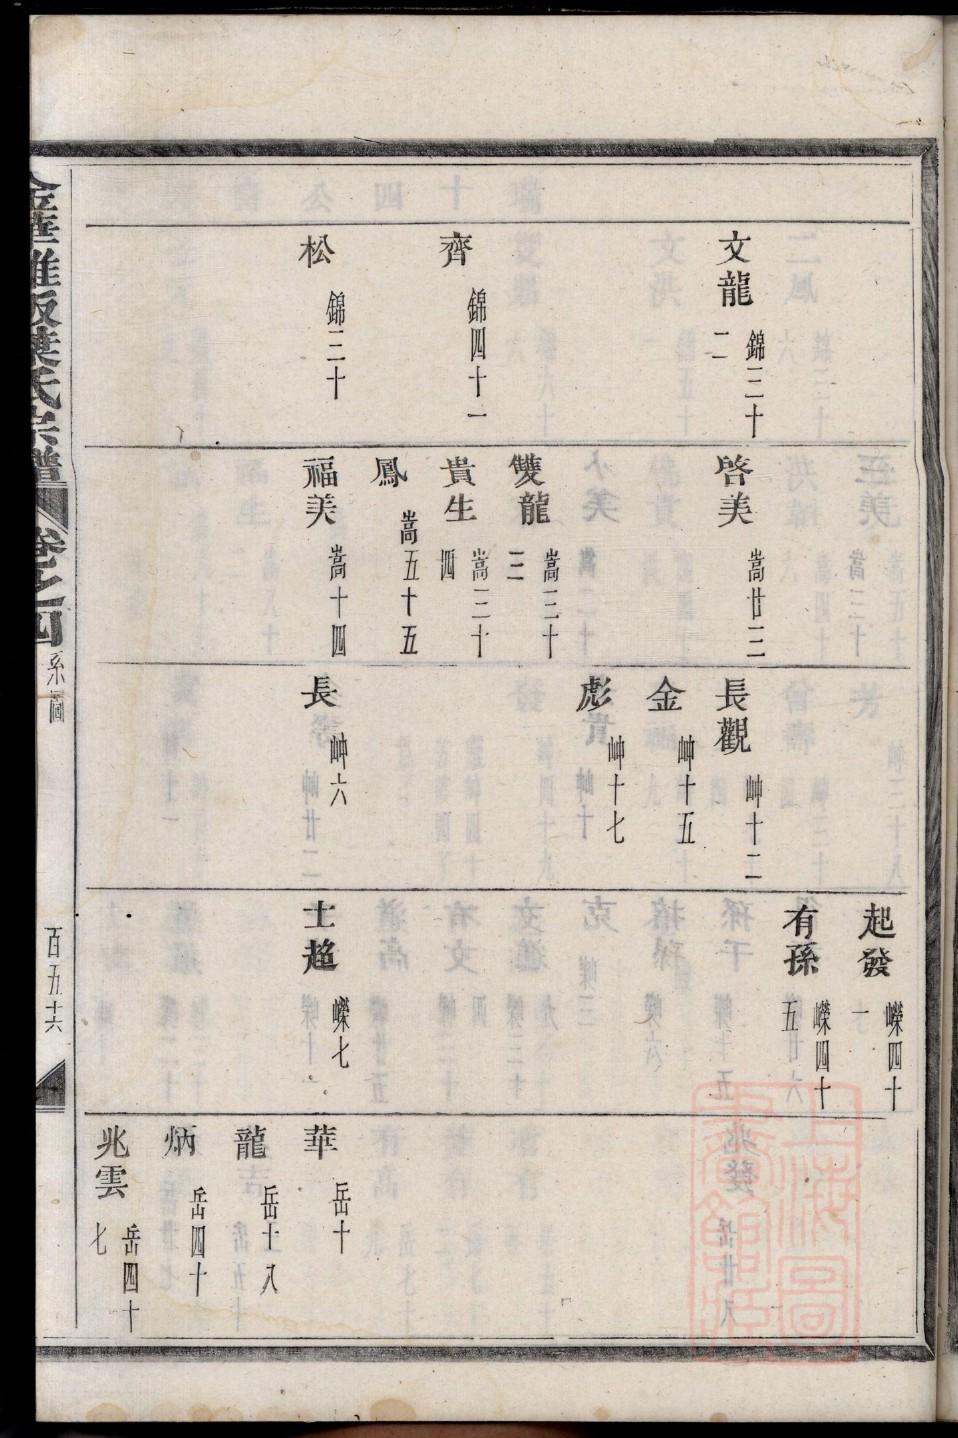 文龍 錦三十二
齊 錦四十一
松 錦三十
啓美 嵩廿三
雙龍 嵩三十三
貴生 嵩三十四
鳳 嵩五十五
福美 嵩十四
長觀 岫十二
金 岫十五
彪 岫十七
長 岫六
起發 嶸四十一
有孫 嶸四十五
士趨 嶸七
華 岳十
龍 岳十八
炳 岳四十
兆雲 岳四十七
金華雅畈葉氏宗譜 卷之四 系圖 百五十六
上海圖書館藏